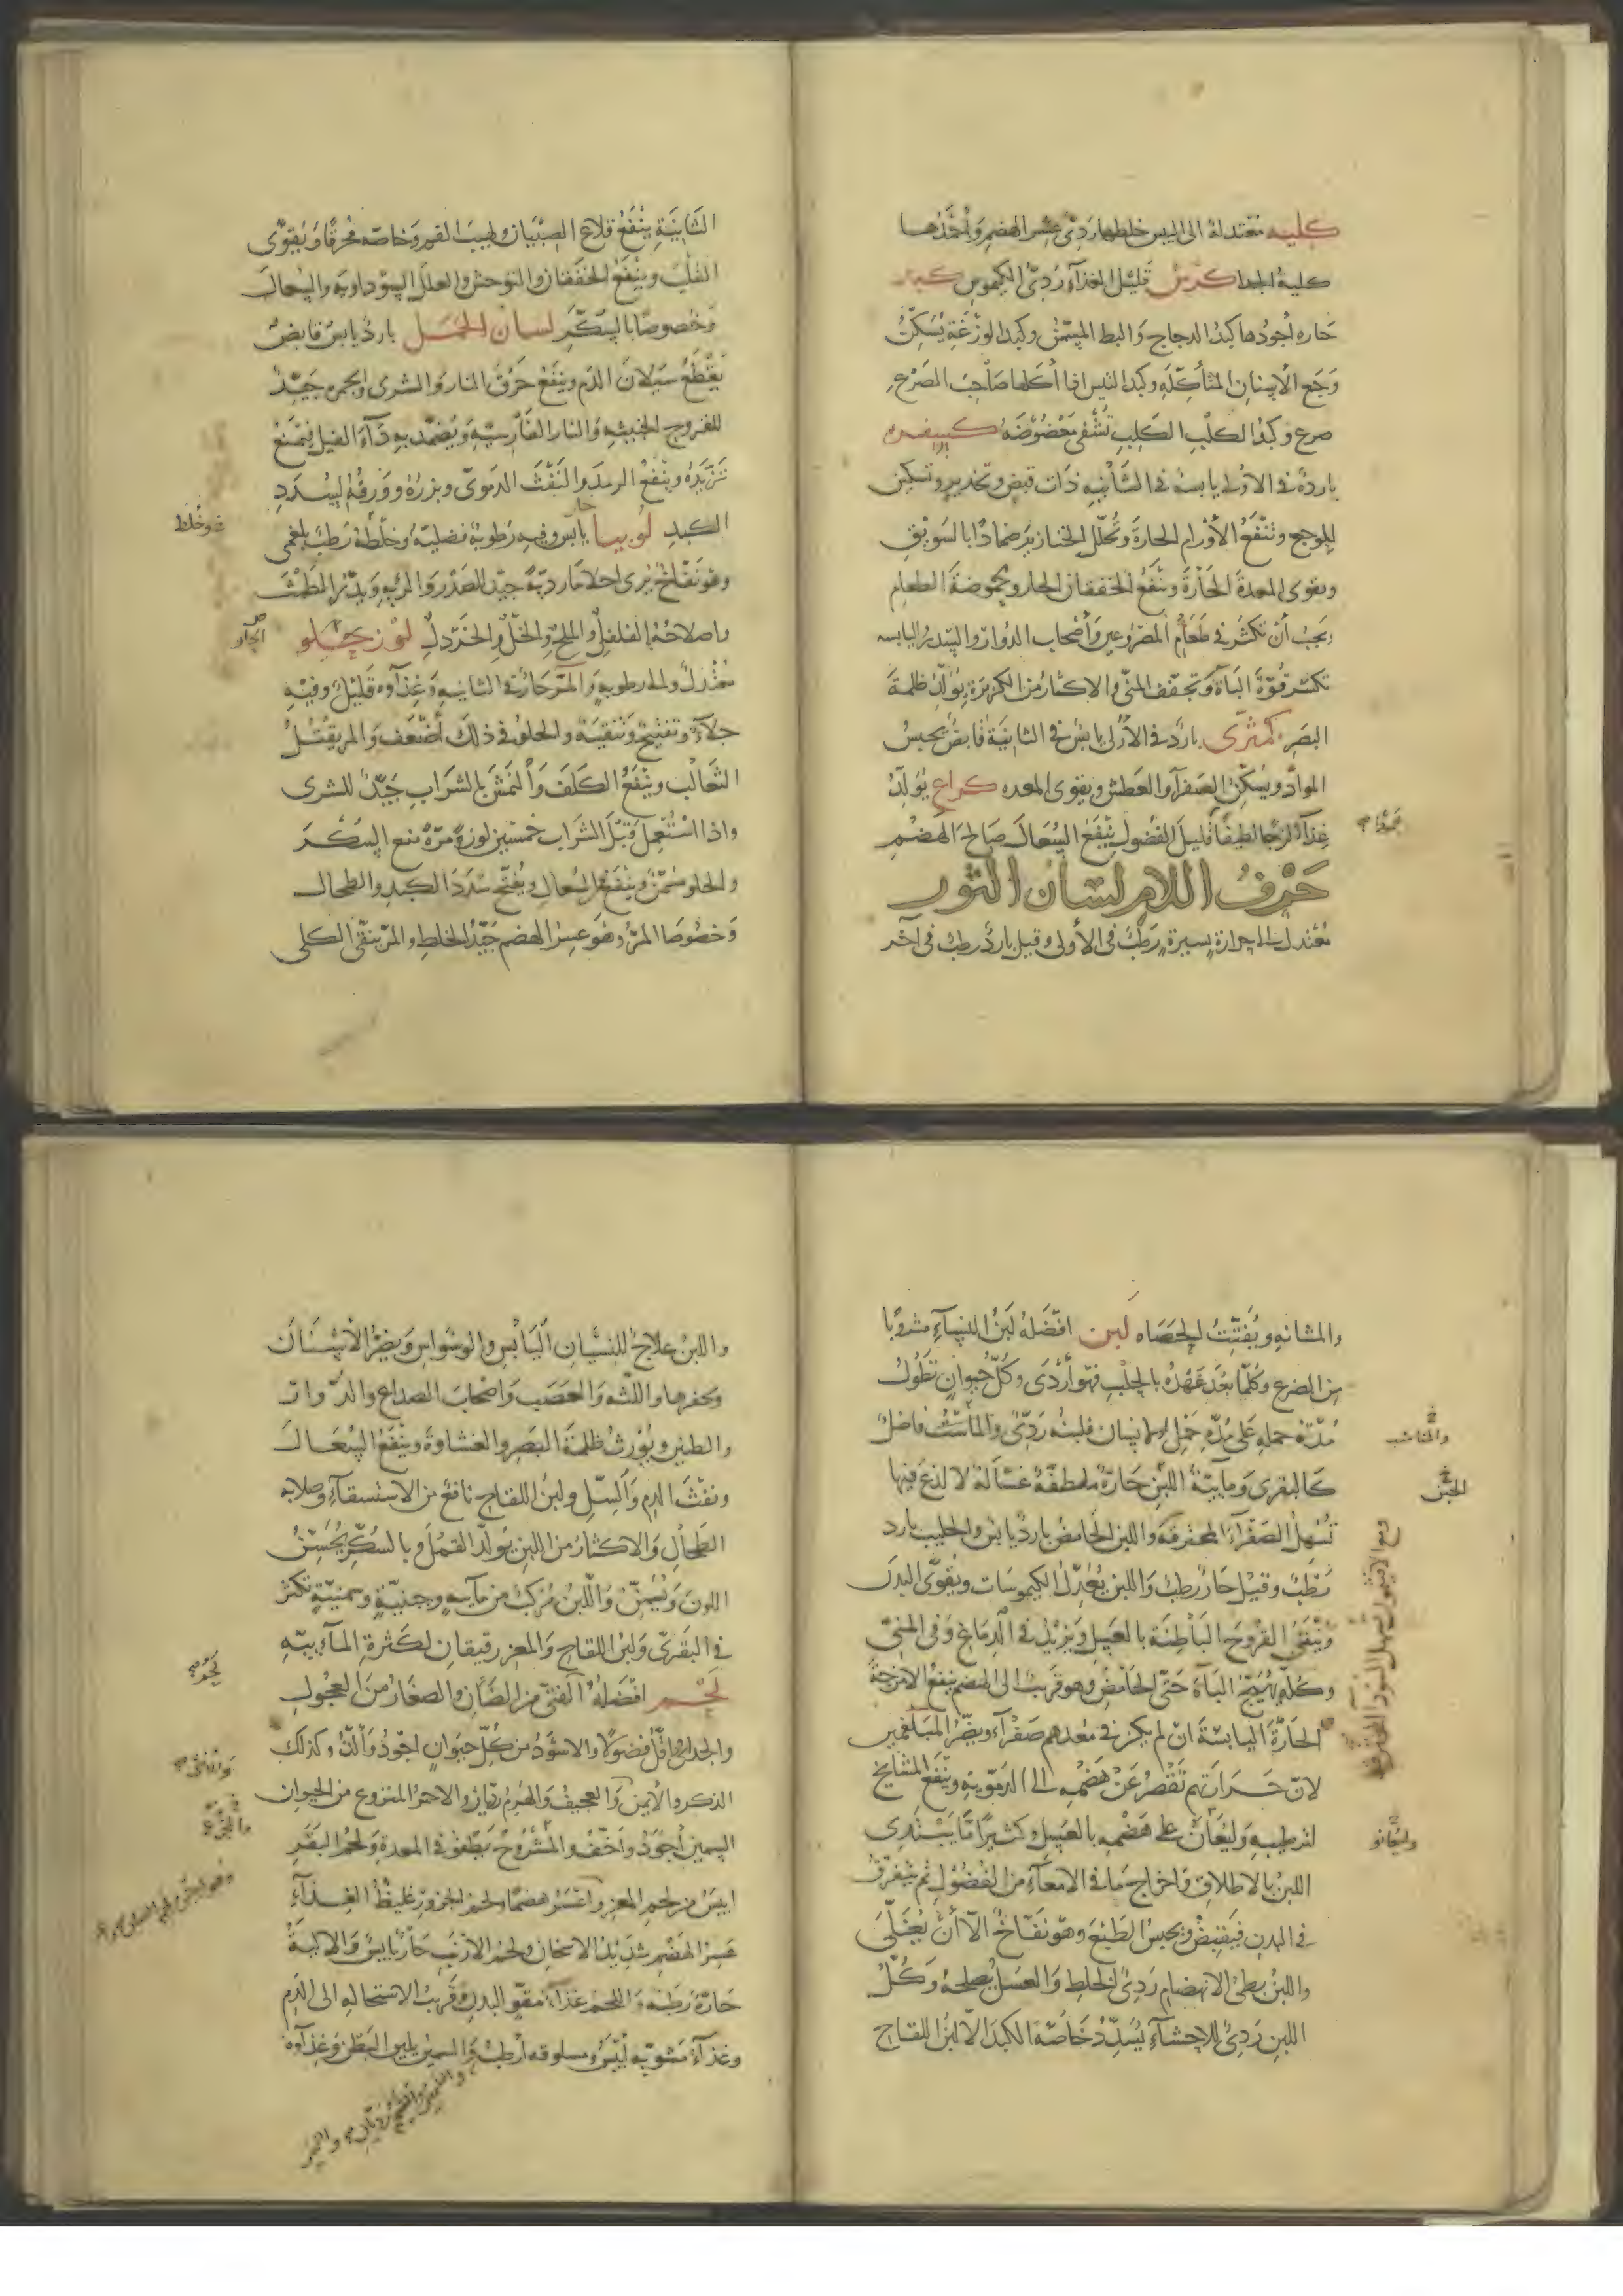 كلية معتدلة الى اليبس خلطها ردئ عسر الهضم وأحمدها
كلية الجدا كرش قليل الغذاء ردئ الكيموس كبد
حاره أجودها كبد الدجاج والبط المسمن وكبد الوزغة يسكن
وجع الأسنان المتأكله وكبد التيس اذا أكلها صاحب الصرع
صرع وكبد الكلب الكلب تشفي معضوضه كسفره
باردة في الأولى يابسة في الثانيه ذات قبض وتخدير وتسكين
للوجع وتنفع الأورام الحارة وتحلل الخنازير ضمادا بالسويق
وتقوى المعدة الحارة وتنفع الخفقان الحار وحموضة الطعام
ويجب أن تكثر في طعام المصروعين وأصحاب الدوار والسدر واليابسه
تكسر قوة الباه وتجفف المني والاكثار من الكزبرة يولد ظلمة
البصر كمثرى بارد في الأولى يابس في الثانية قابض يحبس
المواد ويسكن الصفرآ والعطش ويقوى المعده كراع يولد
غذآء لزجا لطيفا قليل الفضول ينفع السعال صالح الهضم
حرف اللام لسان الثور
معتدل الى حرارة يسيرة رطب في الأولى وقيل بارد رطب في آخر
الثانية ينفع قلاع الصبيان ولهيب الفم وخاصه محرقا ويقوى
القلب وينفع الخفقان والتوحش والعلل السوداويه والسعال
وخصوصا بالسكر لسان الحمل بارد يابس قابض
يقطع سيلان الدم وينفع حرق النار والشرى والحمره جيد
للقروح الخبيثه والنار الفارسيه ويضمد به دآء الفيل فيمنع
تزيده وينفع الرمد والنفث الدموى وبزره وورقه لسدد
الكبد لوبيا حار يابس وفيه رطوبة فضليه وخلطه رطب بلغمى
وخلط
وهو نفاخ يرى احلاما رديه جيد للصدر والريه ويدر الطمث
واصلاحه بالفلفل والملح والخل والخردل لوز حلو
الحلو
معتدل والى رطوبه والمر حار في الثانيه وغذآوه قليل وفيه
جلآء وتفتيح وتنقيه والحلو في ذلك أضعف والمر يقتل
الثعالب وينفع الكلف والنمش بالشراب جيد للشرى
واذا استعمل قبل الشراب خمسين لوزة مرة منع السكر
والحلو مسمن وينفع السعال ويفتح سدد الكبد والطحال
وخصوصا المر وهو عسر الهضم جيد الخلط والمر ينقى الكلى
والمثانه ويفتت الحصاه لبن افضله لبن النسآء مشروبا
من الضرع وكلما بعد عهده بالحلب فهو أردى وكل حيوان تطول
مدة حمله على مدة حمل الانسان فلبنه ردئ والمناسب فاضل
والمناسب
كالبقرى ومايية اللبن حارة ملطفة غسالة لا لذع فيها
تسهل الصفرآء المحترقه واللبن الحامض بارد يابس والحليب بارد
رطب وقيل حار رطب واللبن يعدل الكيموسات ويقوى البدن
وينقى القروح الباطنة بالعسل ويزيد في الدماغ وفي المني
وكله يهيج الباه حتى الحامض وهو قريب الى الهضم ينفع الامزجة
الحارة اليابسة ان لم يكن في معدهم صفرآء ويضر المبلغمين
لان حرارتهم تقصر عن هضمه الى الدمويه وينفع المشايخ
لترطيبه وليعان على هضمه بالعسل وكثيرا ما يبتدى
اللبن بالاطلاق واخراج ما في الامعآء من الفضول ثم يتفرق
في البدن فيقبض ويحبس الطبع وهو نفاخ الا أن يغلى
واللبن بطئ الانهضام ردئ الخلط والعسل يصلحه وكل
اللبن ردئ للاحشآء يسدد خاصة الكبد الا لبن اللقاح
واللبن علاج للنسيان اليابس والوسواس ويضر الأسنان
ويحفرها واللثه والعصب واصحاب الصداع والدوار
والطنين ويورث ظلمة البصر والغشاوة وينفع السعال
ونفث الدم والسل ولبن اللقاح نافع من الاستسقآء وصلابه
الطحال والاكثار من اللبن يولد القمل وبالسكر يحسن
اللون ويسمن واللبن مركب من مآييه وجبنيه وسمنيه تكثر
في البقرى ولبن اللقاح والمعز رقيقان لكثرة المآييه
لحم افضله الفتى من الضأن والصغار من العجول
والجدا اقل فضولا والاسود من كل حيوان اجود وألذ وكذلك
الذكر والأيمن والعجيف والهرم رديان والاحمر المنزوع من الحيوان
السمين أجود وأخف والمشروح يطفو في المعدة ولحم البقر
ايبس من لحم المعز واعسر هضما ولحم الجزور غليظ الغذآء
عسر الهضم شديد الاسخان ولحم الأرنب حار يابس والالية
حارة رطبه واللحم غذآء مقو للبدن وقريب الاستحاله الى الدم
وغذآء مشويه أيبس ومسلوقه أرطب والسمين يلين البطن وغذآوه